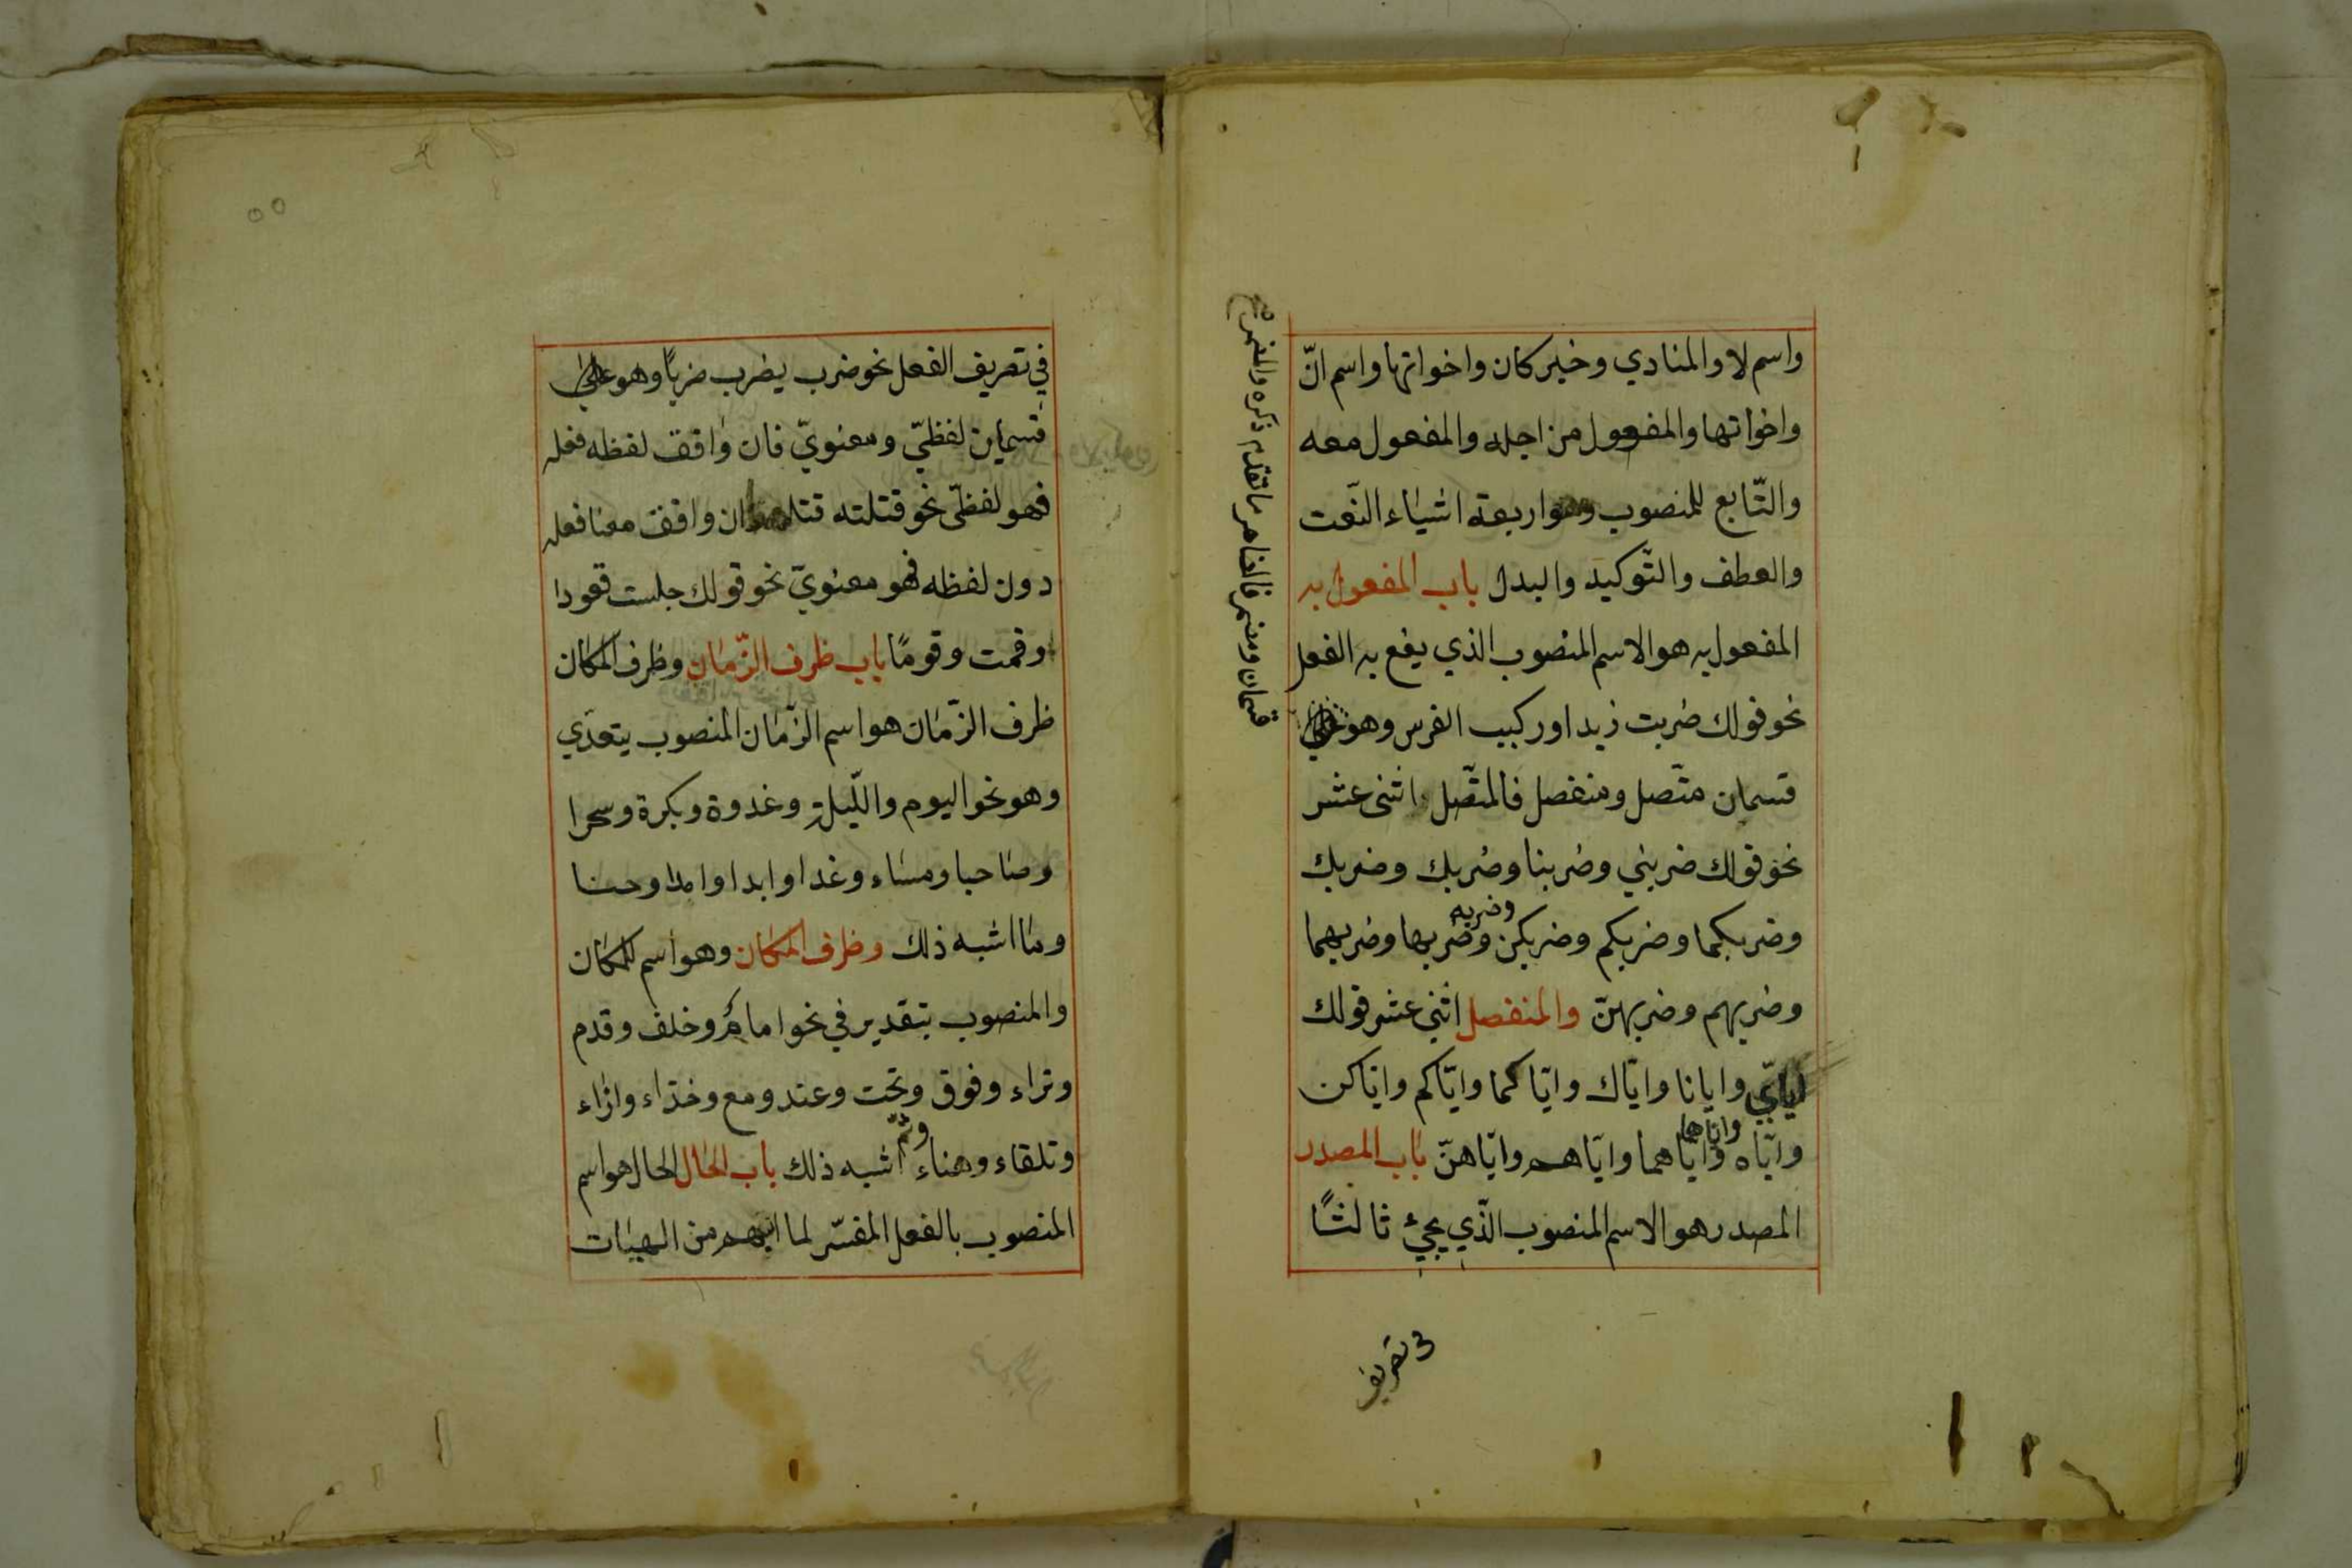 واسم لا والمنادي وخبر كان واخواتها واسم انّ
واخواتها والمفعول من اجله والمفعول معه
والتّابع للمنصوب وهو اربعة اشياء النّعت
والعطف والتّوكيد والبدل باب المفعول به
المفعول به هو الاسم المنصوب الذي يقع به الفعل
نحو قولك ضربت زيدا وركبت الفرس وهو على
قسمان متّصل ومنفصل فالمتّصل اثنى عشر
نحو قولك ضربني وضربنا وضربك وضربك
وضربكما وضربكم وضربكن وضربه وضربها وضربهما
وضربهم وضربهنّ والمنفصل اثنى عشر قولك
ايّاي وايانا وايّاك وايّاكما وايّاكم وايّاكن
وايّاه واياها وايّاهما وايّاهم وايّاهنّ باب المصدر
المصدر هو الاسم المنصوب الّذي يجيء ثالثًا
في تصريف
قسمان ومضمر فالظاهر ما تقدم ذكره والمضمر
في تصريف الفعل نحو ضرب يضرب ضربًا وهو على
قسمين لفظيّ ومعنويّ فان وافق لفظه فعله
فهو لفظيّ نحو قتلته قتلا وان وافق معنا فعله
دون لفظه فهو معنويّ نحو قولك جلست قعودا
وقمت وقومًا باب ظرف الزّمان وظرف المكان
ظرف الزّمان هو اسم الزّمان المنصوب يتعدّي
وهو نحو اليوم واللّيلة وغدوة وبكرة وسحرا
وصاحبا ومساء وغدا وابدا وامدا وحينا
وما اشبه ذلك وظرف المكان وهو اسم المكان
والمنصوب بتقدير في نحو امام وخلف وقدم
وتراء وفوق وتحت وعند ومع وخذاء وازاء
وتلقاء وهناء وثمّ اشبه ذلك باب الحال الحال هو اسم
المنصوب بالفعل المفسّر لما انبهم من الهيئات